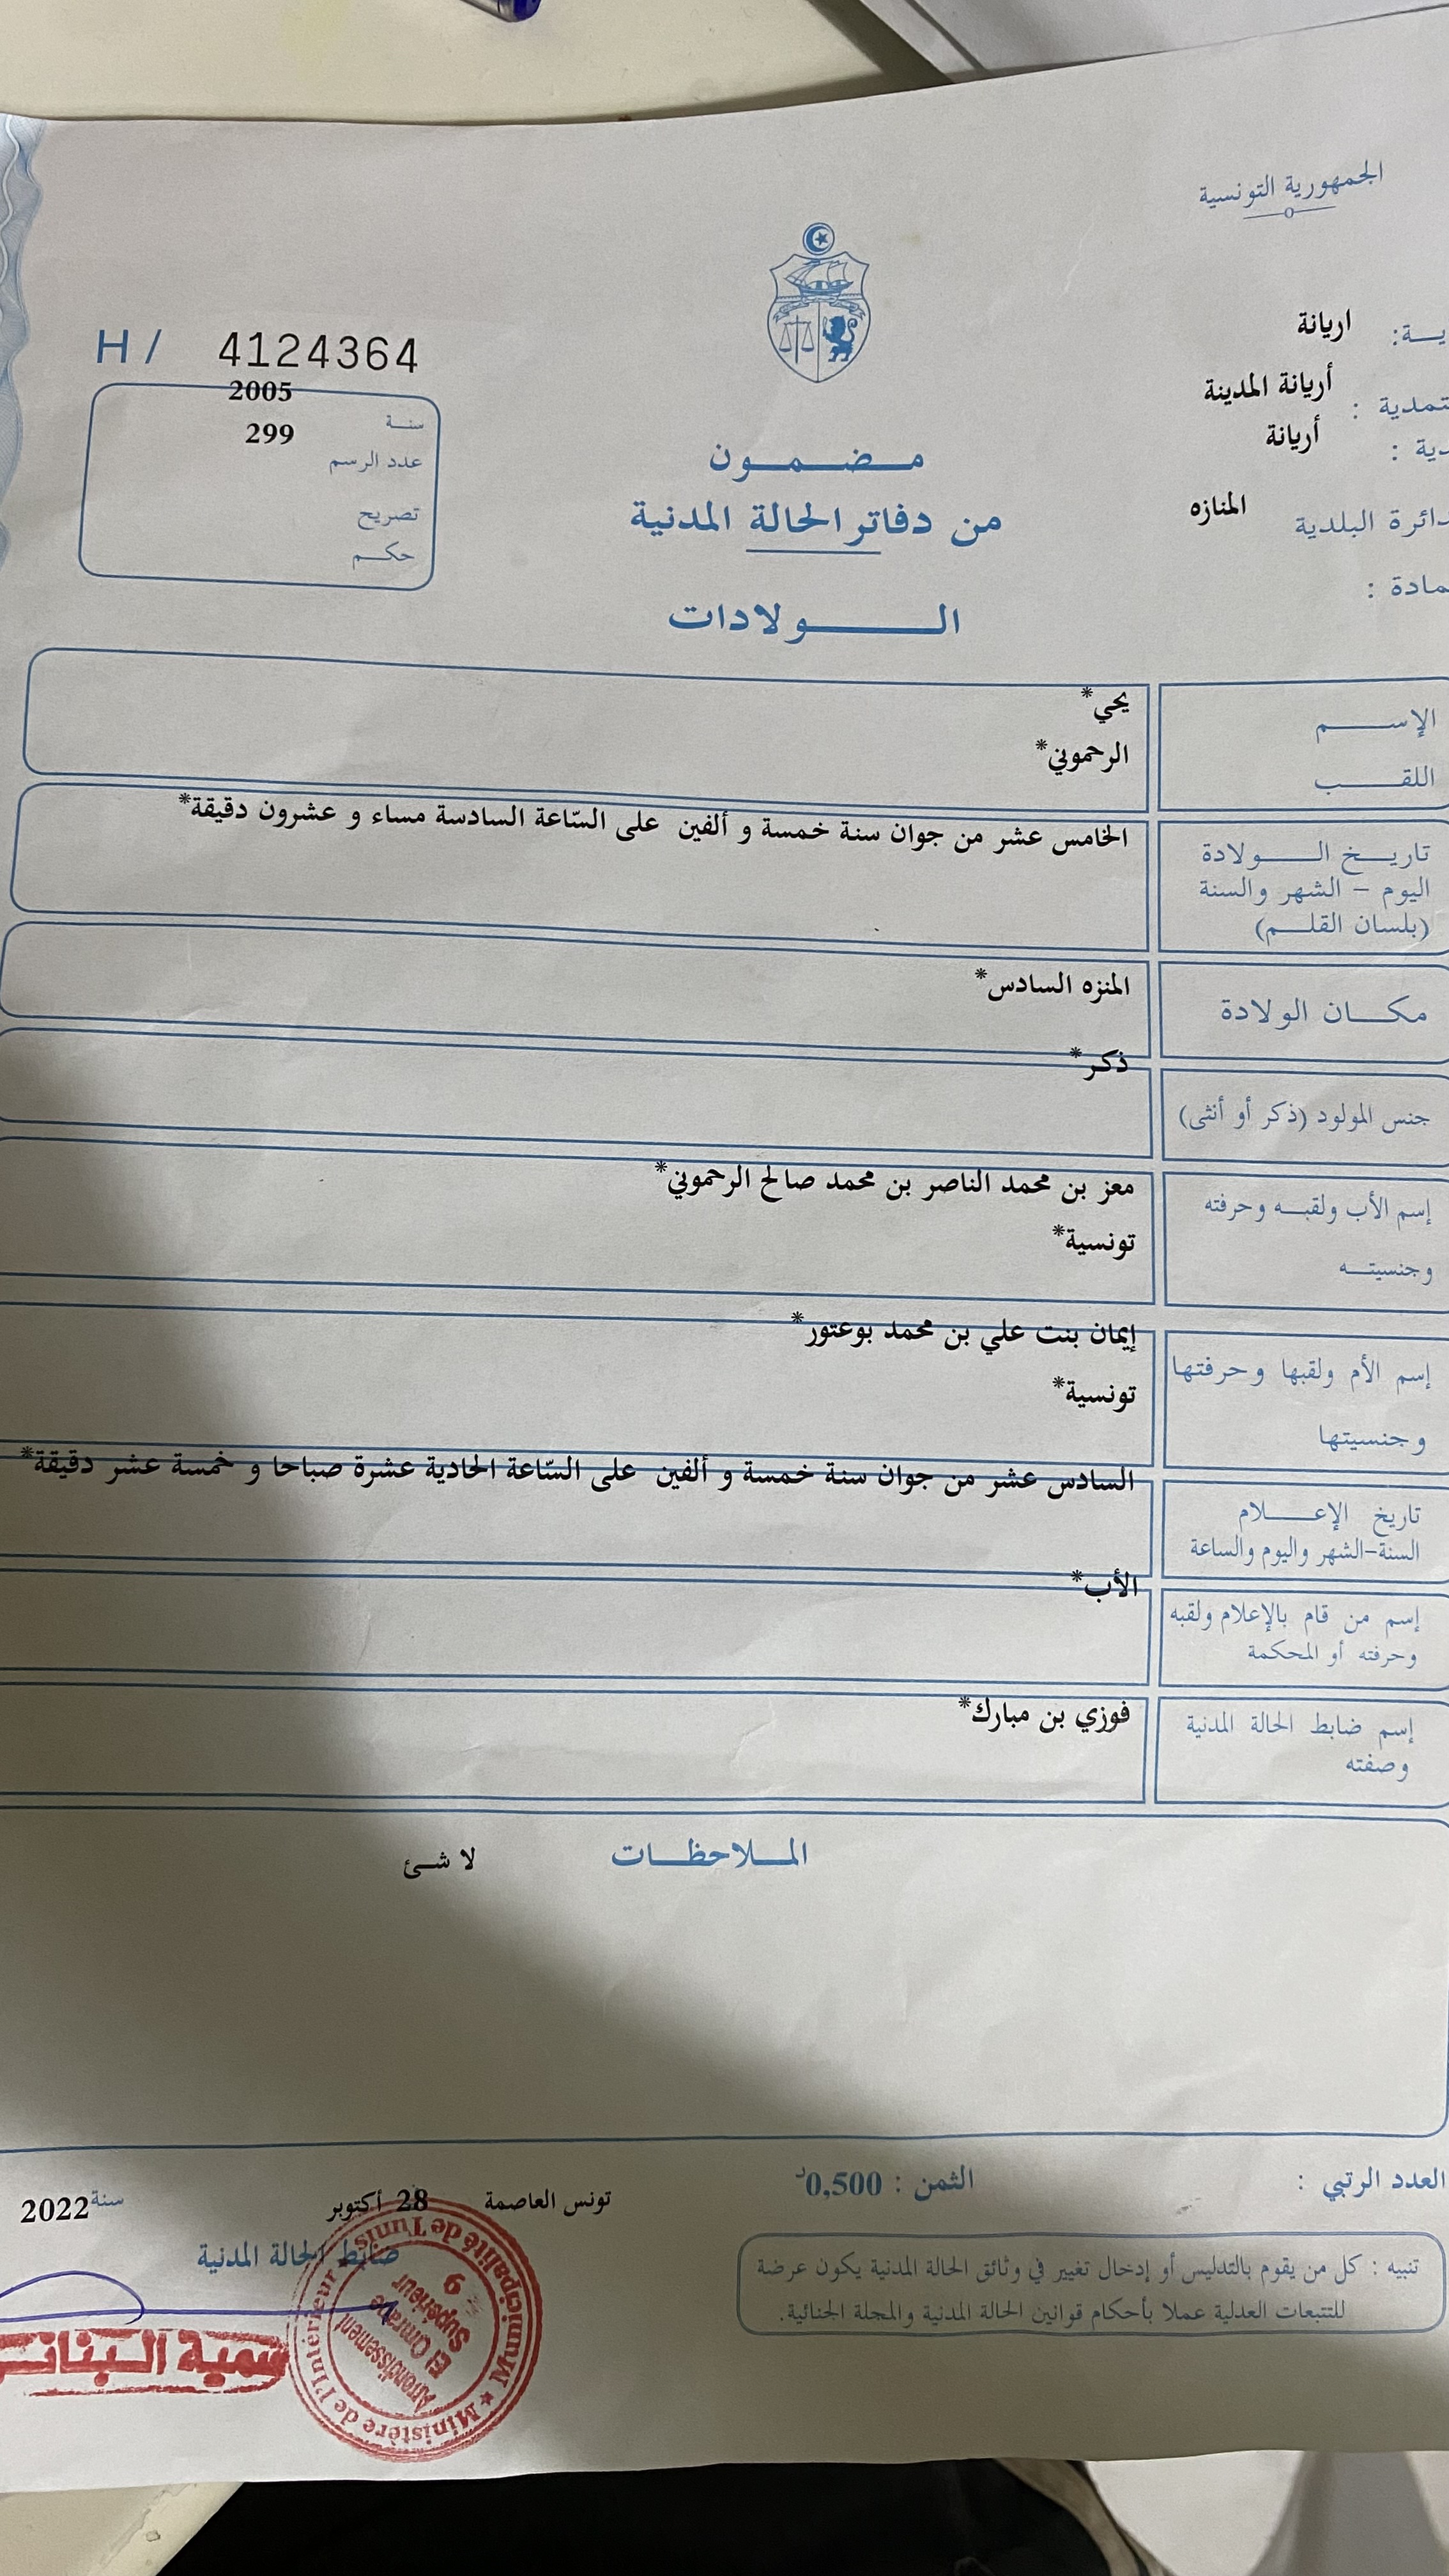 الجمهورية التونسية
اريانة
أريانة المدينة
أريانة
دائرة البلدية المنازه
H/ 4124364
سنة 2005
عدد الرسم 299
تصريح
حكم
مضمون
من دفاتر الحالة المدنية
الولادات
الإسم يحي*
اللقب الرحموني*
تاريخ الولادة
اليوم - الشهر والسنة
(بلسان القلم)
الخامس عشر من جوان سنة خمسة و ألفين على السّاعة السادسة مساء و عشرون دقيقة*
مكان الولادة المنزه السادس*
جنس المولود (ذكر أو أنثى) ذكر*
إسم الأب ولقبه وحرفته معز بن محمد الناصر بن محمد صالح الرحموني*
وجنسيته تونسية*
إسم الأم ولقبها وحرفتها إيمان بنت علي بن محمد بوعتور*
وجنسيتها تونسية*
تاريخ الإعلام
السنة-الشهر واليوم والساعة
السادس عشر من جوان سنة خمسة و ألفين على السّاعة الحادية عشرة صباحا و خمسة عشر دقيقة*
إسم من قام بالإعلام ولقبه
وحرفته أو المحكمة
الأب*
إسم ضابط الحالة المدنية
وصفته
فوزي بن مبارك*
الملاحظات لا شئ
العدد الرتبي :
الثمن : 0,500د
تونس العاصمة 28 أكتوبر سنة 2022
ضابط الحالة المدنية
تنبيه : كل من يقوم بالتدليس أو إدخال تغيير في وثائق الحالة المدنية يكون عرضة
للتتبعات العدلية عملا بأحكام قوانين الحالة المدنية والمجلة الجنائية.
Ministère de l'Intérieur ★ Municipalité de Tunis ★
Arrondissement
El Omrane
Supérieur
9